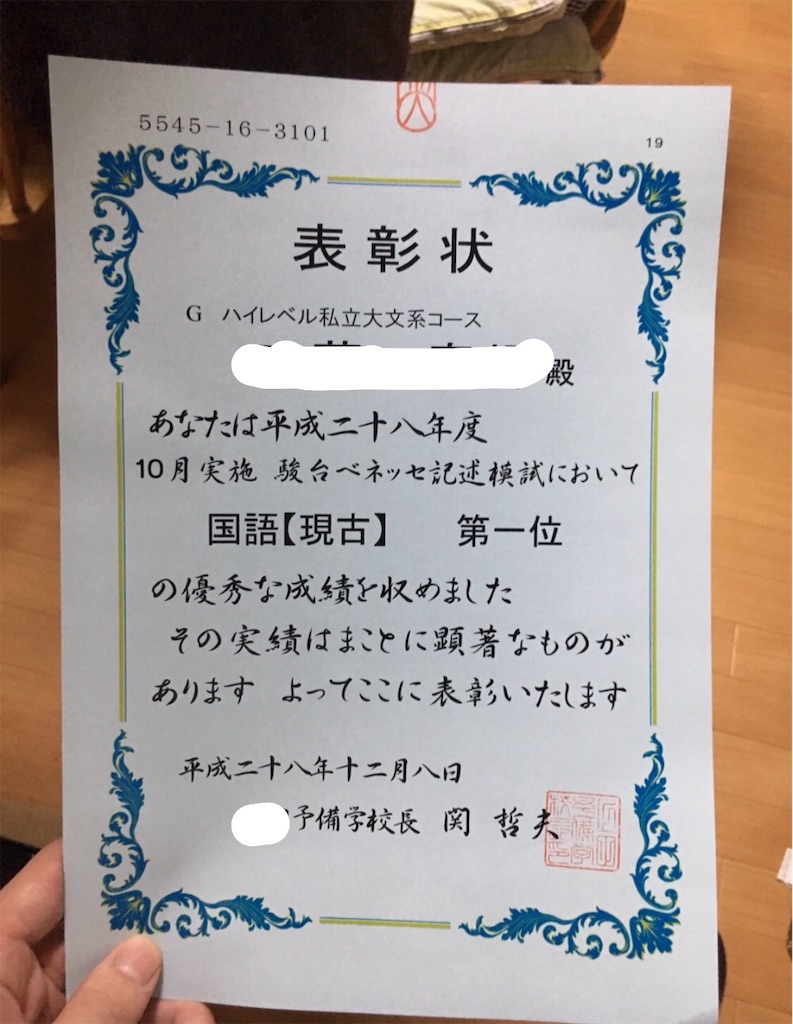 5545-16-3101
19
表彰状
G ハイレベル私立大文系コース
殿
あなたは平成二十八年度
10月実施 駿台ベネッセ記述模試において
国語【現古】 第一位
の優秀な成績を収めました
その実績はまことに顕著なものが
あります よってここに表彰いたします
平成二十八年十二月八日
予備学校長 関 哲夫